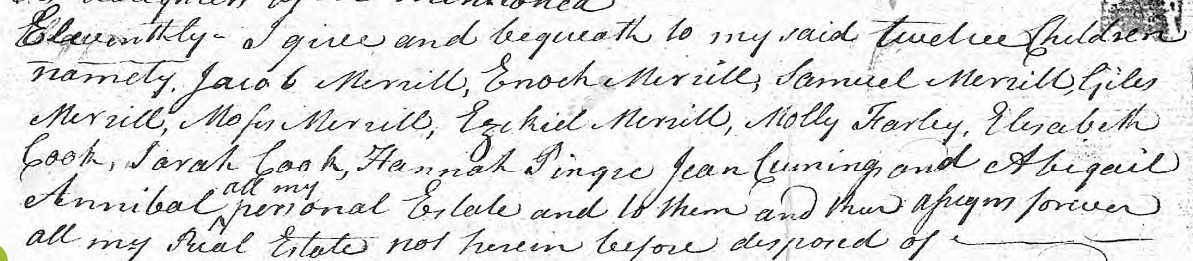 mentioned
Eleventhly - I give and bequeath to my said twelve Children
namely. Jacob Merrill, Enoch Merrill, Samuel Merrill, Giles
Merrill, Moses Merrill, Ezekiel Merrill, Molly Farley, Elisabeth
Cook, Sarah Cook, Hannah Pingre Jean Cuming and Abigail
all my
Annibal personal Estate and to them and their assigns forever
all my Real Estate not herein before disposed of